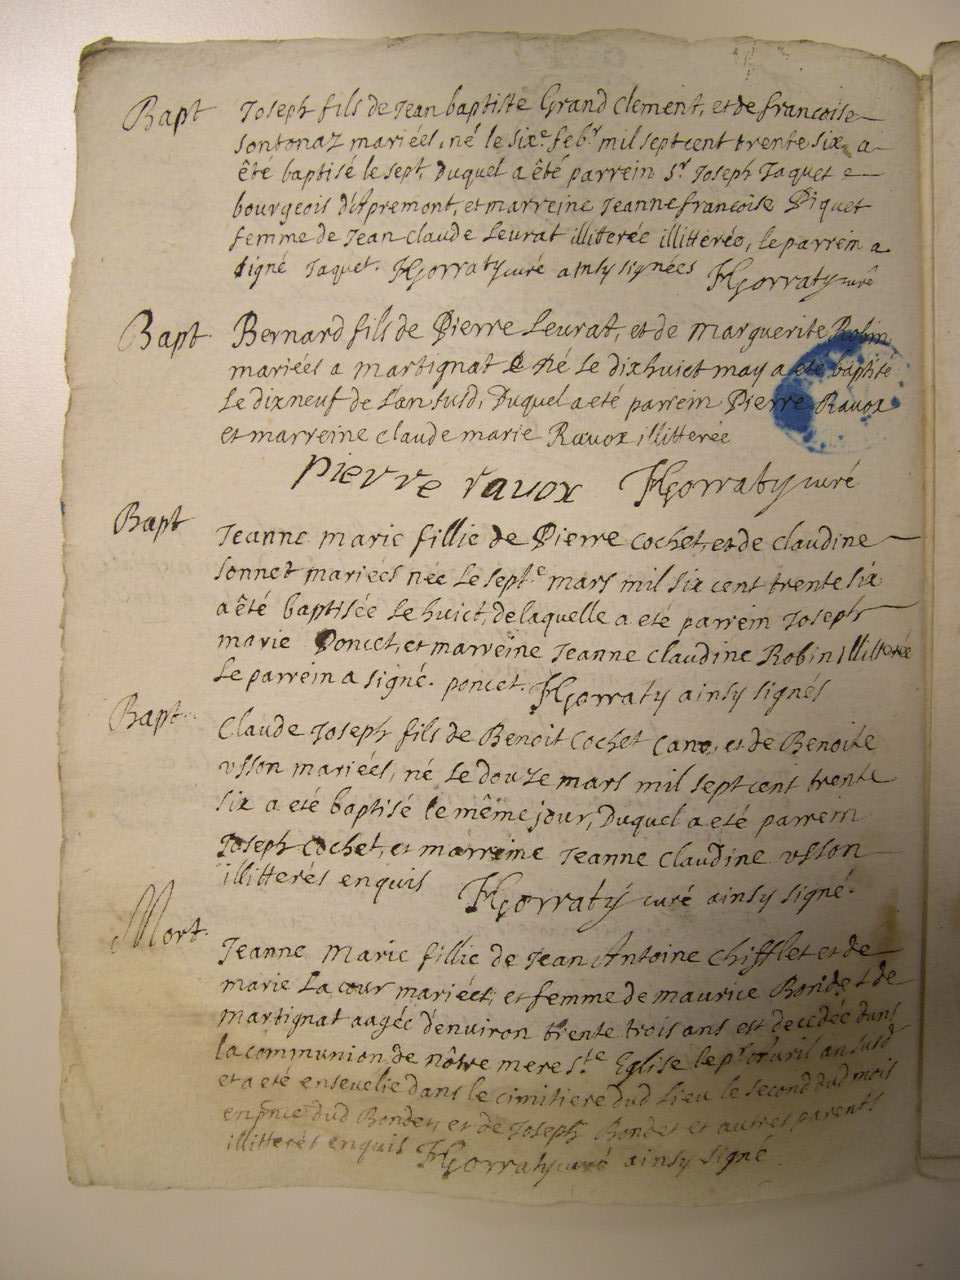 Bapt Joseph fils de Jean baptiste Grand clement, et de francoise
sontonaz mariées, né le six.e feb.r mil sept cent trente six a
été baptisé le sept, Duquel a êté parrein S.r Joseph Jaquet
bourgeois d'Apremont, et marreine Jeanne francoise Piquet
femme de Jean claude Leurat illiterée illitéréo, le parrein a
signé Jaquet. HGorraty curé ainsy signées HGorraty curé
Bapt Bernard fils de Pierre Leurat, et de marguerite Robin
mariées a martignat né Le dixhuict may a eté baptisé
Le dixneuf de L'an susd, Duquel a eté parrein Pierre Ravox
et marreine claude marie Ravox illitterée
pierre ravox HGorraty curé
Bapt Jeanne marie fillie de Pierre cochet, et de claudine
sonnet mariées née Le sept.e mars mil six cent trente six
a êté baptisée Le huict, de laquelle a eté parrein Joseph
marie Poncet, et marreine Jeanne claudine Robin illitterée
Le parrein a signé. poncet. HGorraty ainsy signés
Bapt. Claude Joseph fils de Benoit cochet cano, et de Benoite
usson mariées, né Le douze mars mil sept cent trente
six a eté baptisé le même jour, Duquel a eté parrein
Joseph cochet, et marreine Jeanne claudine usson
illitterés enquis HGorraty curé ainsy signé.
Mort. Jeanne Marie fillie de Jean Antoine chifflet et de
marie La cour mariées, et femme de maurice Bondet de
martignat aagée d'environ trente trois ans est decedée dans
la communion de nôtre mere s.te Eglise le pr avril an susd
et a eté ensevelie dans le cimitiere dud Lieu le second dud mois
en pnce dud Bondet, et de Joseph Bondet et autres parents
illitterés enquis HGorraty curé ainsy signé